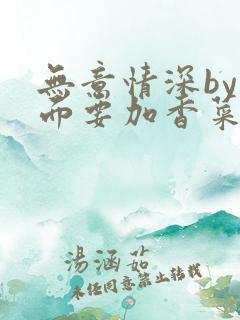 無意情深by
而要加香菜
湯涵茹
未经同意禁止转载